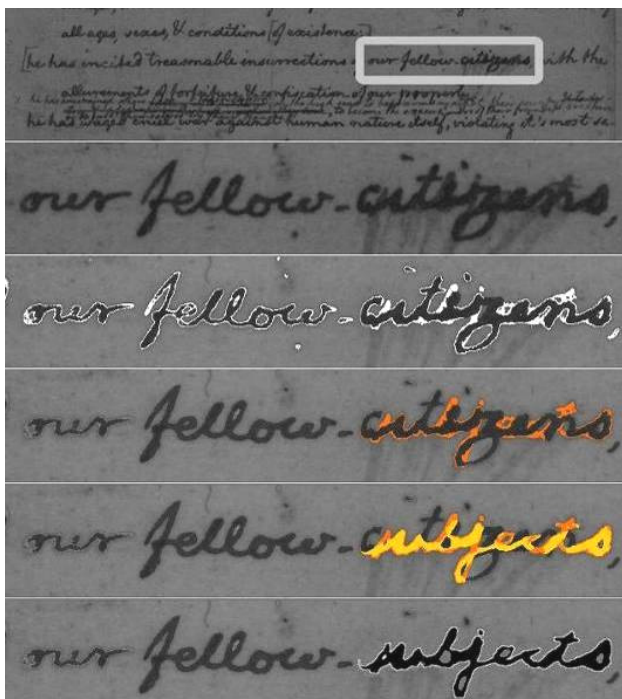 all ages, sexes, & conditions [of existence:]
[he has incited treasonable insurrections our fellow-citizens, with the
allurements of forfeiture, & confiscation of our property
he has waged cruel war against human nature itself, violating it's most sa-
our fellow-citizens,
our fellow-citizens,
our fellow-citizens,
our fellow-subjects,
our fellow-subjects,